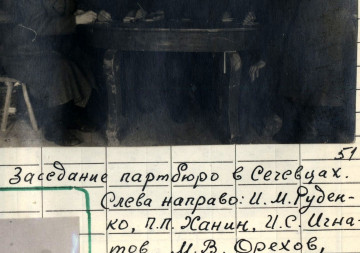 51
Заседание партбюро в Сечевцах.
Слева направо: И.М.Руден-
ко, П.П. Ханин, И.С. Игна-
тов, М.В. Орехов,